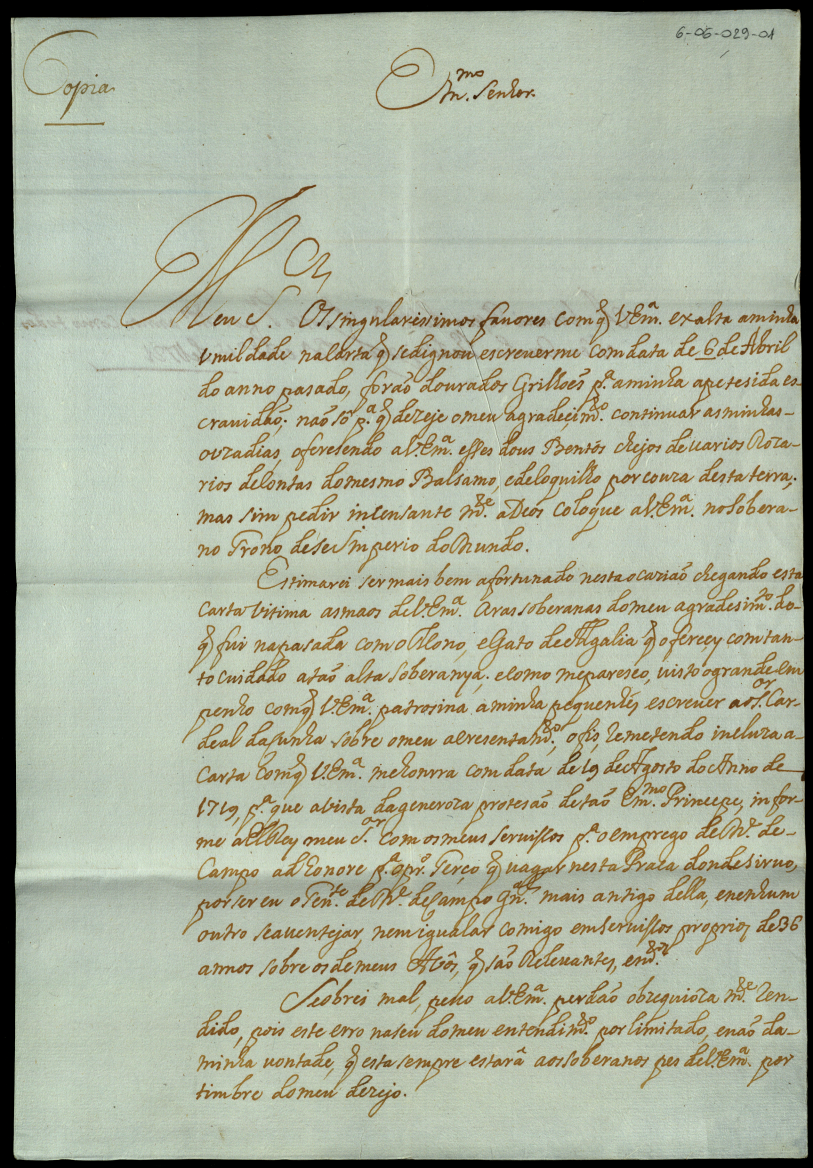 6-05-029-01
Copia
Em.mo Senhor.
Meu S.or Os singularissimos favores com q̃ V.Em.ª exalta aminha
Vmildade na Carta q̃ se dignou escreverme com data de 6 de Abril
do anno pasado, forão dourados Grilloẽs p.ª aminha apetesida es-
cravidaõ; naõ só p.ª q̃ dezeje o meu agradeçim.to continuar as minhas-
ouzadias, oferesendo a V.Em.ª esses dous Bentos chejos de varios Roza-
rios de Contas do mesmo Balsamo, e de loquillo por couza desta terra;
mas sim pedir incensante m.te a Deos coloque a V.Em.ª no sobera-
no Trono dese Imperio do Mundo.
Estimarei ser mais bem afortunado nesta ocaziaõ chegando esta
carta Vltima as maos de V.Em.ª Aras soberanas do meu agradesim.to do-
q̃ fui na pasada com o Mono, e Gato de Algalia q̃ ofereçy com tan-
to cuidado a taõ alta soberanya; e como me pareseo, visto o grande em
penho com q̃ V.Em.ª patrosina a minha pequenhés escrever ao S.or Car-
deal da Cunha sobre o meu acresentam.to, o fis, Remetendo incluza a-
Carta com q̃ V.Em.ª me honrra com data de 19 de Agosto do Anno de
1719, p.ª que a vista da generoza protesaõ de taõ Em.mo Prinsepe, infor-
me a ElRey meu S.or com os meus servissos p.ª o emprego de M.e de-
Campo ad honore p.ª o pr.º Terço q̃ vagar nesta Praça donde sirvo,
por ser eu o Ten.te de M.e de Campo Gn.al mais antigo della, e nenhum
outro se aventejar, nem igualar comigo em servissos proprios de 36
annos sobre os de meus Avôs, q̃ saõ Relevantes,
Se obrei mal, peço a V.Em.ª perdaõ obzequioza m.te Ren-
dido, pois este erro naseu do meu entendim.to por limitado, e naõ da-
minha vontade, q̃ esta sempre estarâ aos soberanos pes de V.Em.ª por
timbre do meu dezejo.